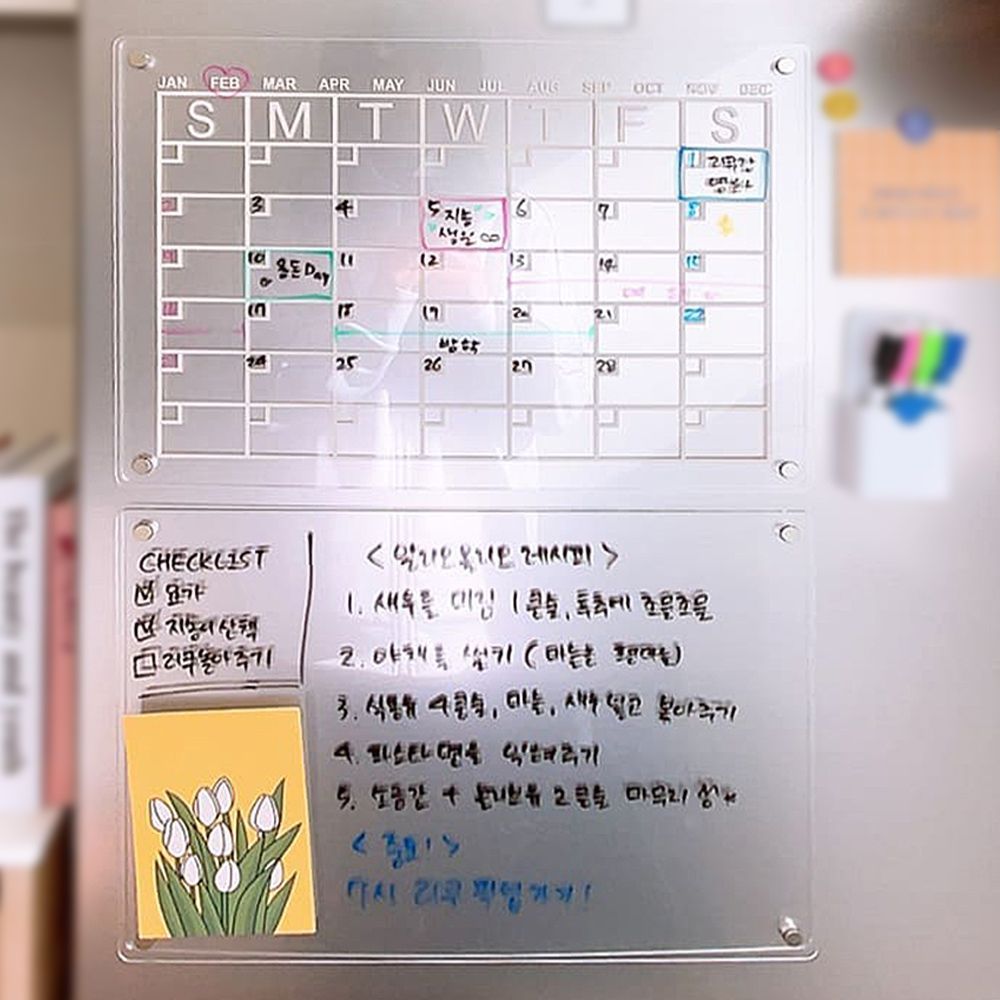 JAN FEB MAR APR MAY JUN JUL AUG SEP OCT NOV DEC
S M T W T F S
1 리쿠랑
2 3 4 5 지능 6 7 8
생일 ∞
9 10 용돈Day 11 12 13 14 15
17 18 19 20 21 22
방학
24 25 26 27 28
CHECKLIST
☑ 요가
☑ 산책
☐ 리쿠놀아주기
< 알리오올리오 레시피 >
1. 새우를 미림 1큰술, 톡톡에 조물조물
2. 야채를 썰기 (마늘을
3. 식용유 4큰술, 마늘, 새우 넣고 볶아주기
4. 파스타면을 익혀주기
5. 소금간 + 올리브유 2큰술 마무리
< 중요! >
7시 리쿠 픽업가기!